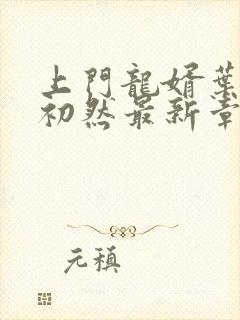 上門龍婿葉
初然最新章
元稹